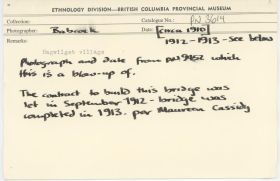 ETHNOLOGY DIVISION—BRITISH COLUMBIA PROVINCIAL MUSEUM
Collection: Catalogue No.: PN 3614
Photographer: Babcock Date: [circa 1910]
Remarks: 1912-1913 - see below
Hagwilget village
Photograph and date from PN 9452 which
this is a blow-up of.
The contract to build this bridge was
let in September 1912 - bridge was
completed in 1913. per Maureen Cassidy